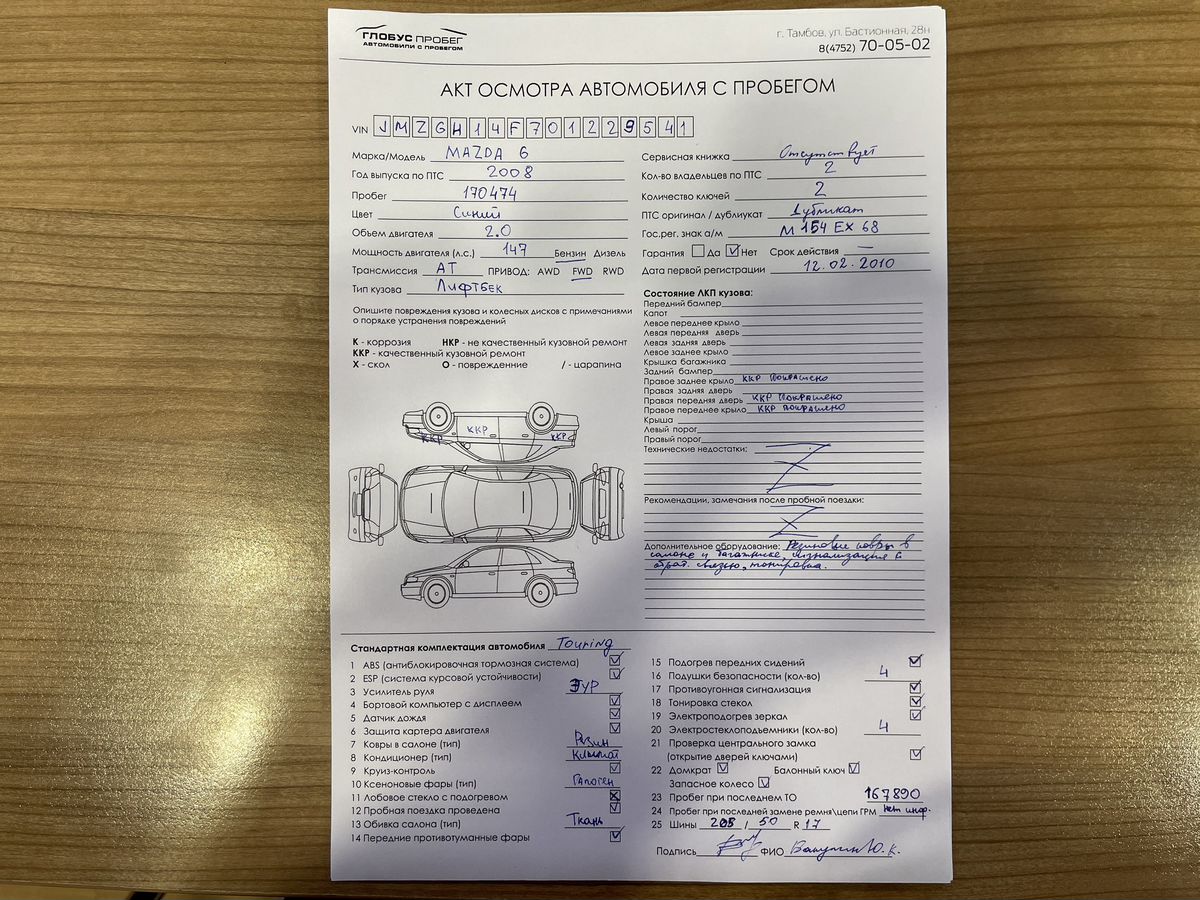 ГЛОБУС ПРОБЕГ
АВТОМОБИЛИ С ПРОБЕГОМ
г. Тамбов, ул. Бастионная, 28н
8(4752) 70-05-02
АКТ ОСМОТРА АВТОМОБИЛЯ С ПРОБЕГОМ
VIN JMZGH14F701229541
Марка/Модель MAZDA 6
Год выпуска по ПТС 2008
Пробег 170474
Цвет Синий
Объем двигателя 2.0
Мощность двигателя (л.с.) 147 Бензин Дизель
Трансмиссия АТ ПРИВОД: AWD FWD RWD
Тип кузова Лифтбек
Опишите повреждения кузова и колесных дисков с примечаниями
о порядке устранения повреждений
К - коррозия НКР - не качественный кузовной ремонт
ККР - качественный кузовной ремонт
Х - скол О - повреждение / - царапина
ККР ККР ККР
Сервисная книжка Отсутствует
Кол-во владельцев по ПТС 2
Количество ключей 2
ПТС оригинал / дубликат Дубликат
Гос.рег. знак а/м М 154 ЕХ 68
Гарантия Да Нет Срок действия —
Дата первой регистрации 12.02.2010
Состояние ЛКП кузова:
Передний бампер
Капот
Левое переднее крыло
Левая передняя дверь
Левая задняя дверь
Левое заднее крыло
Крышка багажника
Задний бампер
Правое заднее крыло ККР Покрашено
Правая задняя дверь
Правая передняя дверь ККР Покрашено
Правое переднее крыло ККР покрашено
Крыша
Левый порог
Правый порог
Технические недостатки: Z
Рекомендации, замечания после пробной поездки:
Z
Дополнительное оборудование: Резиновые ковры в
салоне и багажнике, сигнализация с
обрат. связью, тонировка.
Стандартная комплектация автомобиля Touring
1 ABS (антиблокировочная тормозная система)
2 ESP (система курсовой устойчивости)
3 Усилитель руля ЭУР
4 Бортовой компьютер с дисплеем
5 Датчик дождя
6 Защита картера двигателя
7 Ковры в салоне (тип) Резин
8 Кондиционер (тип) Климат
9 Круиз-контроль
10 Ксеноновые фары (тип) Галоген
11 Лобовое стекло с подогревом
12 Пробная поездка проведена
13 Обивка салона (тип) Ткань
14 Передние противотуманные фары
15 Подогрев передних сидений
16 Подушки безопасности (кол-во) 4
17 Противоугонная сигнализация
18 Тонировка стекол
19 Электроподогрев зеркал
20 Электростеклоподъемники (кол-во) 4
21 Проверка центрального замка
(открытие дверей ключами)
22 Домкрат Балонный ключ
Запасное колесо
23 Пробег при последнем ТО 167890
24 Пробег при последней замене ремня\цепи ГРМ нет инф.
25 Шины 205 / 50 R 17
Подпись ФИО Ю.К.